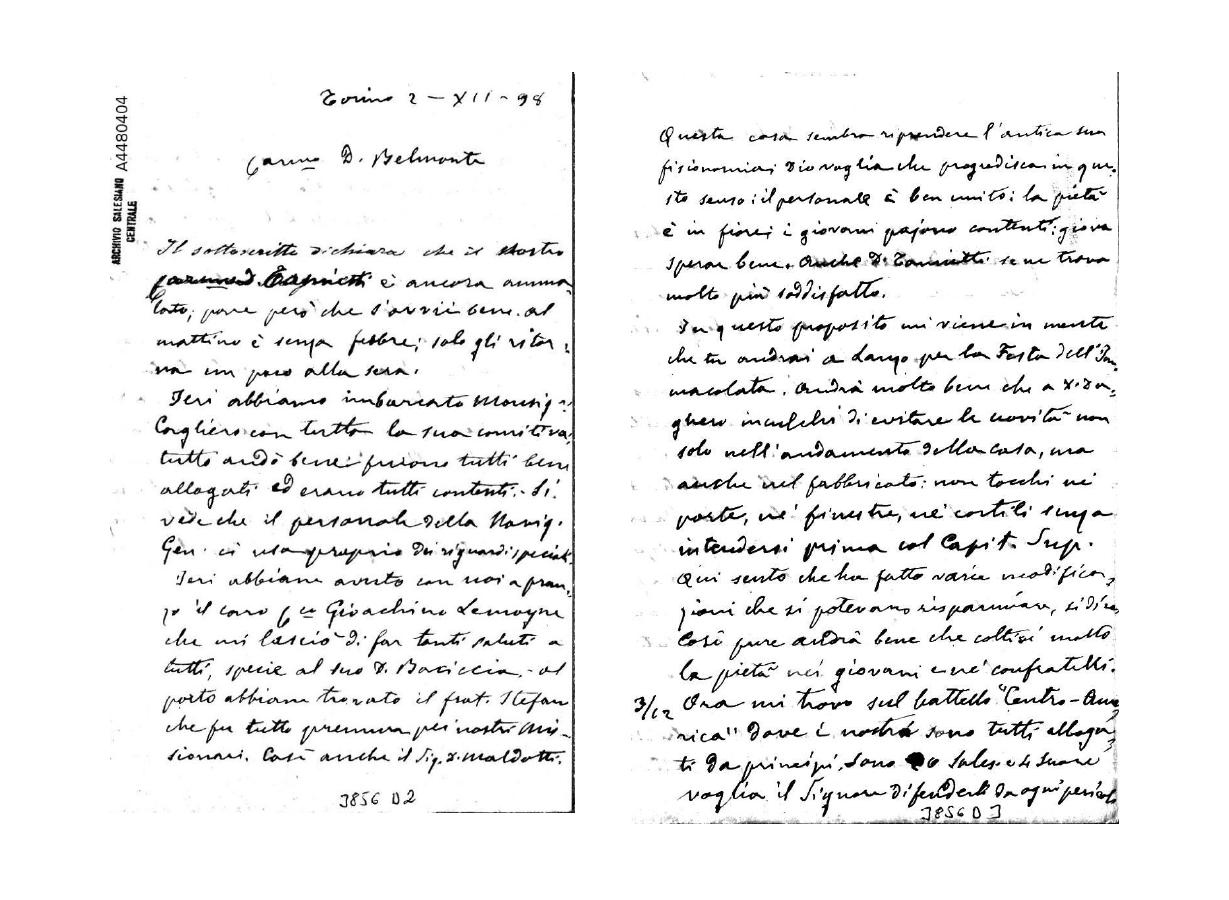 ARCHIVIO SALESIANO
CENTRALE
A4480404
Torino 2 - XII - 98
Carmo D. Belmonte
Il sottoscritto dichiara che il nostro
è ancora amma
lato; pare però che s'avvii bene. al
mattino è senza febbre; solo gli ritor
na un poco alla sera.
Ieri abbiamo imbarcato Monsig.
Cagliero con tutta la sua comitiva;
tutto andò bene: furono tutti bene
allogati ed erano tutti contenti. - Si
vede che il personale della Navig.
Gen. ci usa proprio dei riguardi speciali.
Ieri abbiamo avuto con noi a pran
zo il caro Gioachino Lemoyne
che mi lasciò di far tanti saluti a
tutti, specie al suo D. Baciccia. - al
porto abbiamo trovato il frat. Stefano
che fu tutto premura pei nostri Mis
sionari. Così anche il Sig. D. Maldotti.
3856 D2
Questa casa sembra riprendere l'antica sua
fisionomia; Dio voglia che progredisca in que
sto senso: il personale è ben unito: la pietà
è in fiore; i giovani pajono contenti: giova
sperar bene. Anche D. se ne trova
molto più soddisfatto.
In questo proposito mi viene in mente
che tu andrai a Lanzo per la Festa dell'Im
macolata. Andrà molto bene che a D.
inculchi di evitare le novità non
solo nell'andamento della casa, ma
anche nel fabbricato: non tocchi nè
porte, nè finestre, nè cortili senza
intendersi prima col Capit. Sup.
Qui sento che ha fatto varie modifica
zioni che si potevano risparmiare, si dice
Così pure andrà bene che coltivi molto
la pietà nei giovani e ne' confratelli.
3/12 Ora mi trovo sul battello "Centro-Ame
rica" dove i nostri sono tutti alloga
ti da principi. Sono Sales. e Suore
voglia il Signore difenderli da ogni pericolo
3856 D3